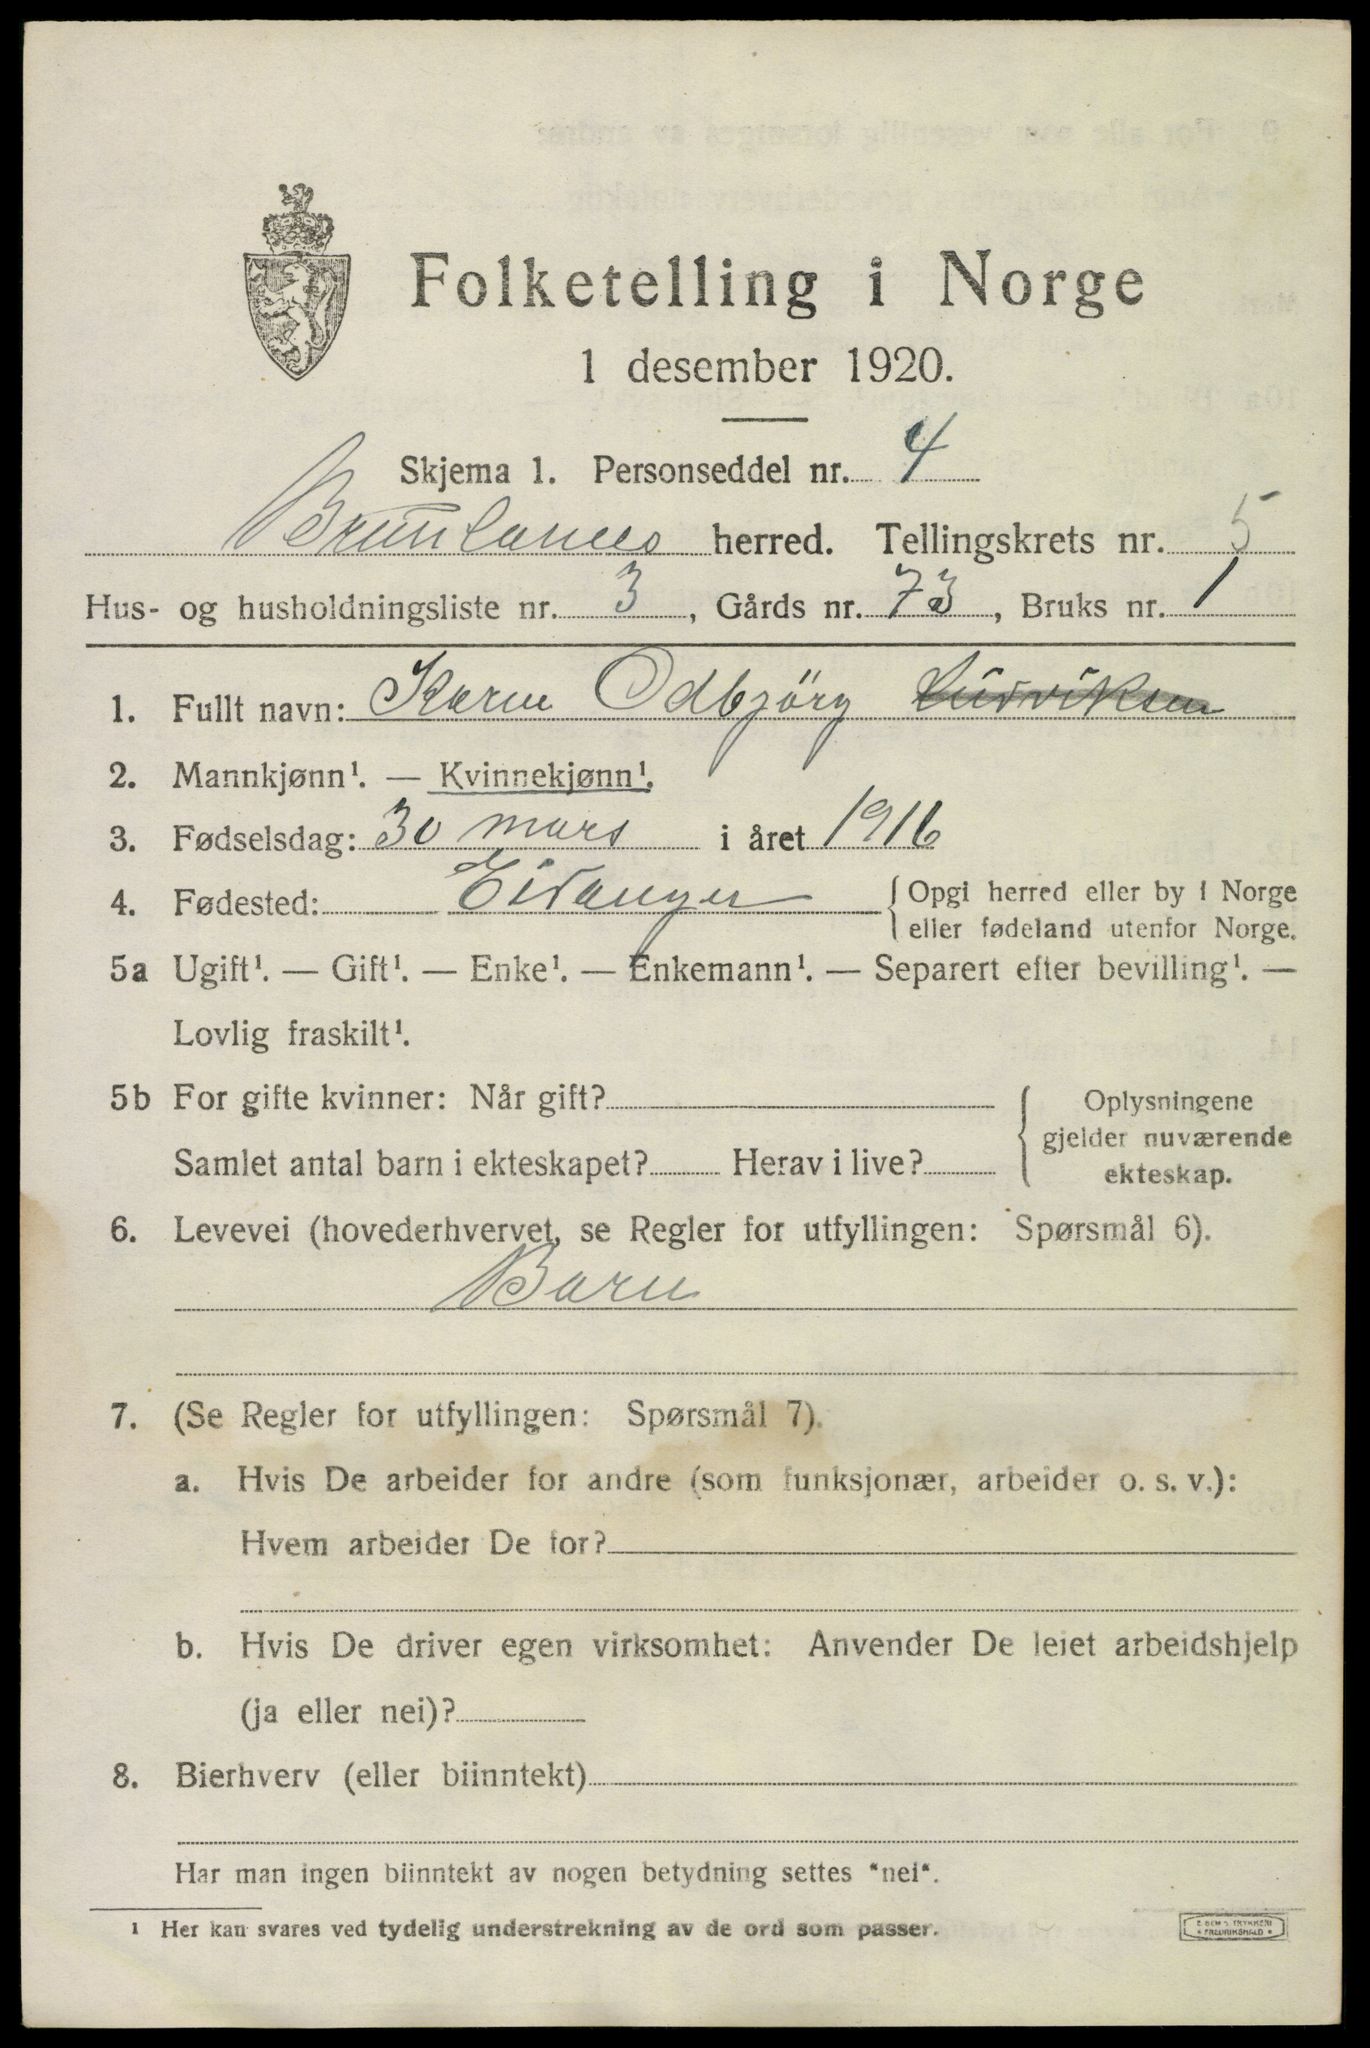 Folketelling i Norge
1 desember 1920.
Skjema 1. Personseddel nr. 4
Brunlanes herred. Tellingskrets nr. 5
Hus- og husholdningsliste nr. 3, Gårds nr. 73, Bruks nr. 1
1. Fullt navn: Karin Odbjörg Ludviksen
2. Mannkjønn¹. — Kvinnekjønn¹.
3. Fødselsdag: 30 mars i året 1916
4. Fødested: Eidanger {Opgi herred eller by i Norge
eller fødeland utenfor Norge.
5a Ugift¹. — Gift¹. — Enke¹. — Enkemann¹. — Separert efter bevilling¹. —
Lovlig fraskilt¹.
5b For gifte kvinner: Når gift?
Samlet antal barn i ekteskapet? Herav i live?
{Oplysningene
gjelder nuværende
ekteskap.
6. Levevei (hovederhvervet, se Regler for utfyllingen: Spørsmål 6).
Barn
7. (Se Regler for utfyllingen: Spørsmål 7).
a. Hvis De arbeider for andre (som funksjonær, arbeider o. s. v.):
Hvem arbeider De for?
b. Hvis De driver egen virksomhet: Anvender De leiet arbeidshjelp
(ja eller nei)?
8. Bierhverv (eller biinntekt)
Har man ingen biinntekt av nogen betydning settes "nei".
¹ Her kan svares ved tydelig understrekning av de ord som passer.